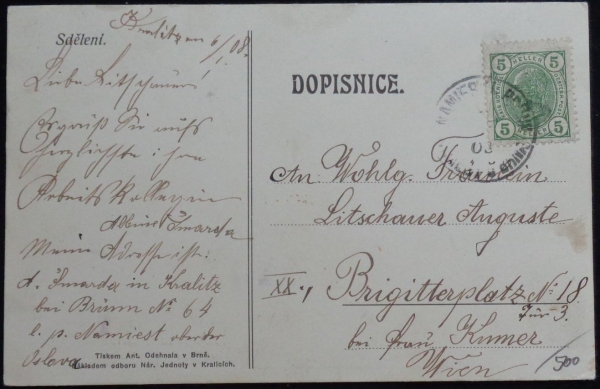 Sdělení.
Kralitz am 6/1.08.
Liebe Litschauer!
Es grüßt Sie aufs
Herzlichste ihre
Arbeitskollegin
Albine Smarda
Meine Adresse ist:
A. Smarda in Kralitz
bei Brünn No 64
l. p. Namiest ob der
Oslava
Tiskem Ant. Odehnala v Brně.
Nákladem odboru Nár. Jednoty v Kralicích.
DOPISNICE.
5 HELLER 5
5 5
NAMIEST
An Wohlg. Fräulein
Litschauer Auguste
XX., Brigitterplatz No 18.
Tür 3.
bei Frau Kumer
Wien
500